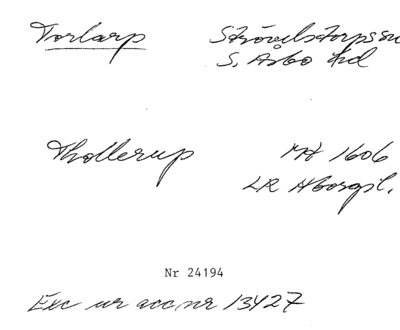 Torlarp Strövelstorps sn
S. Åsbo hd
Thollerup MH 1606
LR Åborgsl.
Nr 24194
Exc ur acc.nr 13427